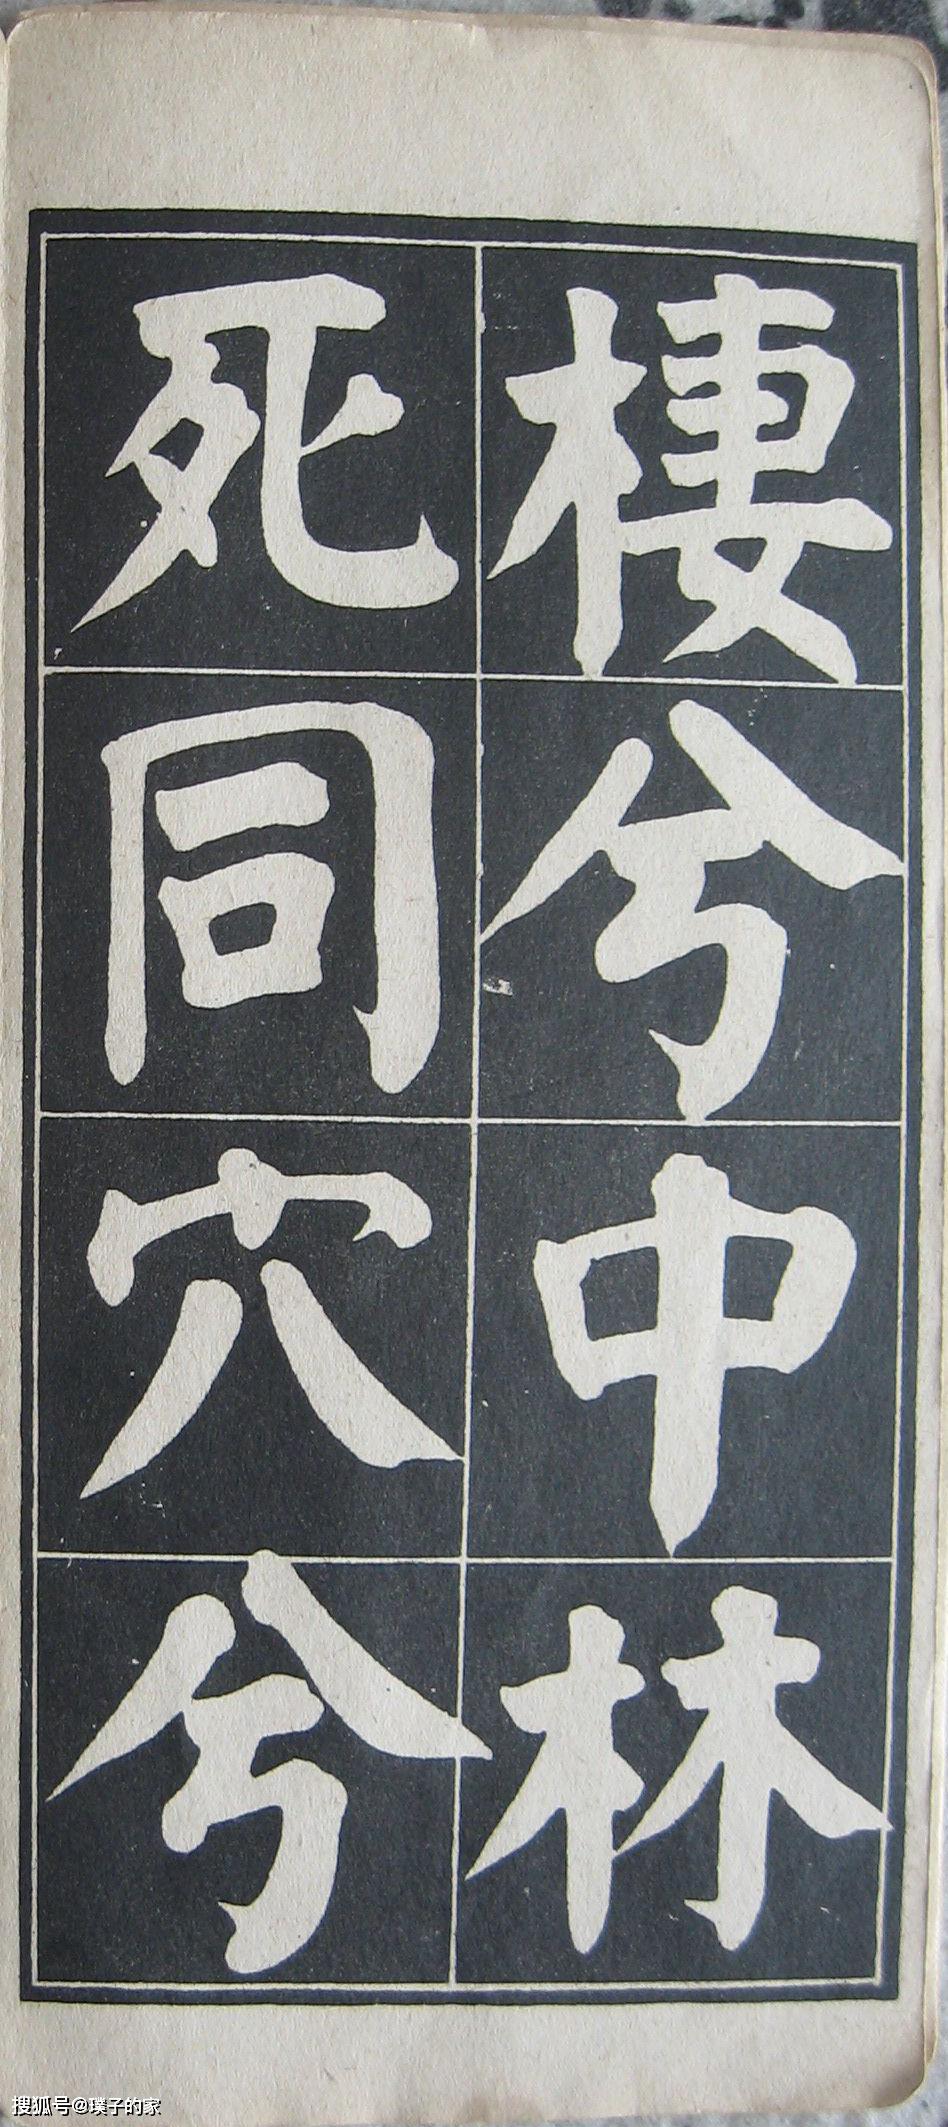 棲兮中林
死同穴兮
搜狐号@璞子的家